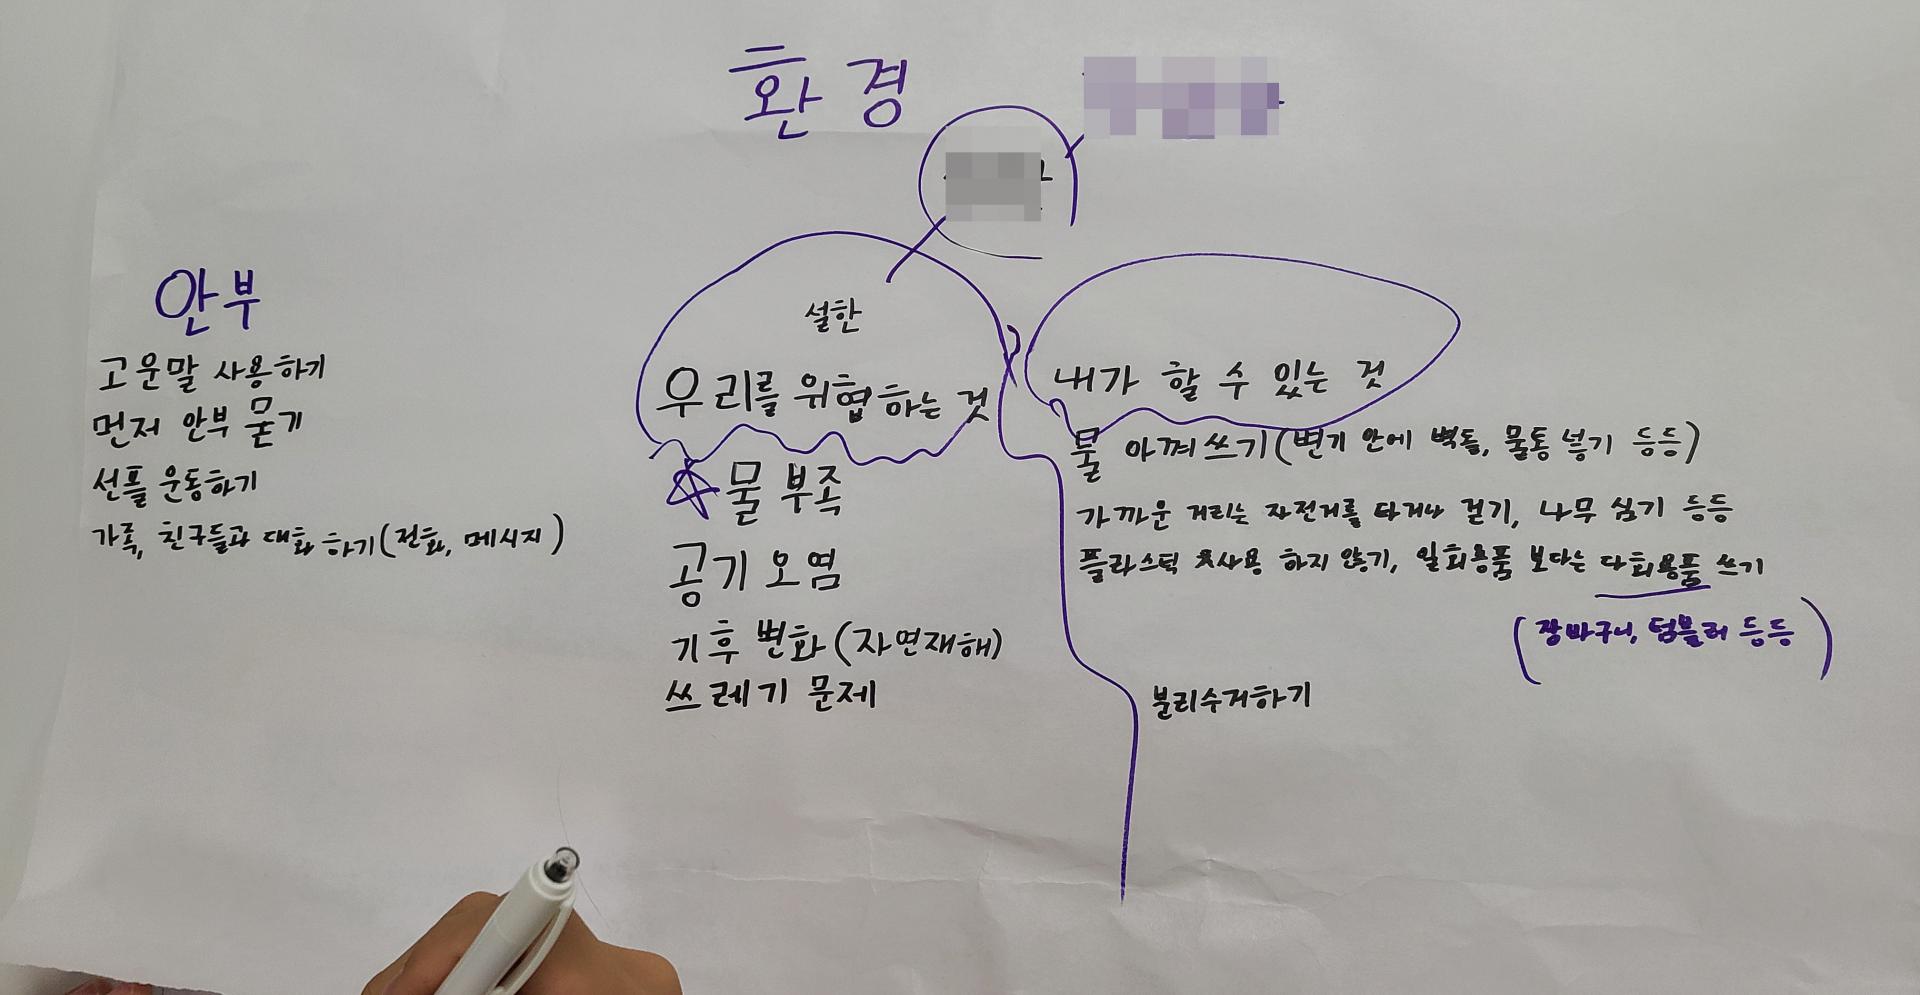 환경
안부
고운말 사용하기
먼저 안부 묻기
선플 운동하기
가족, 친구들과 대화 하기(전화, 메시지)
설한
우리를 위협하는 것
물 부족
공기 오염
기후 변화(자연재해)
쓰레기 문제
내가 할 수 있는 것
물 아껴쓰기(변기 안에 벽돌, 물통 넣기 등등)
가까운 거리는 자전거를 타거나 걷기, 나무 심기 등등
플라스틱 사용 하지 않기, 일회용품 보다는 다회용품 쓰기
(장바구니, 텀블러 등등)
분리수거하기